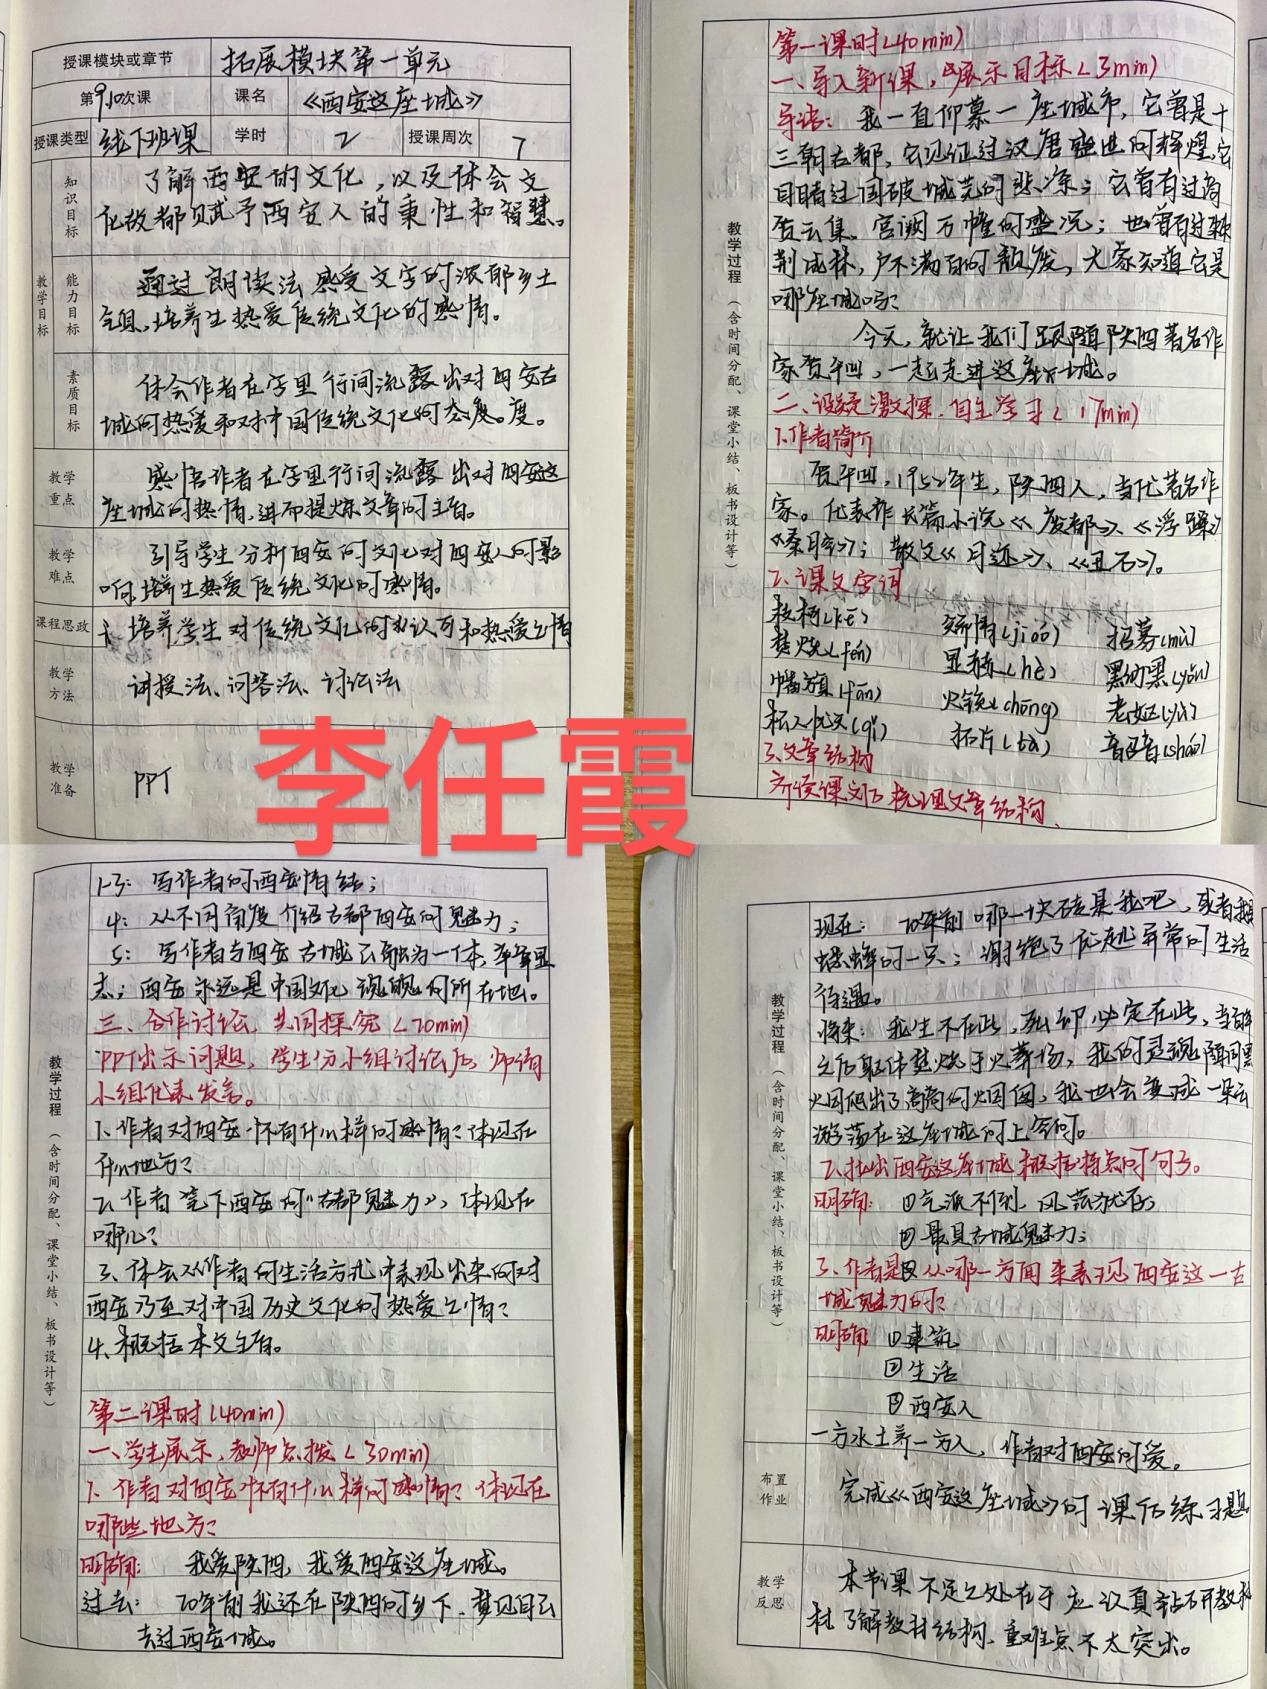 授课模块或章节 拓展模块第一单元
第9.10次课 课名 《西安这座城》
授课类型 线下班课 学时 2 授课周次 7
教学目标
知识目标
了解西安的文化，以及体会文
化故都赋予西安人的秉性和智慧。
能力目标
通过朗读法感受文字的浓郁乡土
气息，培养生热爱传统文化的感情。
素质目标
体会作者在字里行间流露出对西安古
城的热爱和对中国传统文化的态度。度。
教学重点
感悟作者在字里行间流露出对西安这
座城的热情，进而提炼文章的主旨。
教学难点
引导学生分析西安的文化对西安人的影
响，培养生热爱传统文化的感情。
课程思政 培养学生对传统文化的认可和热爱之情
教学方法 讲授法、问答法、讨论法
教学准备 PPT
李任霞
教学过程（含时间分配、课堂小结、板书设计等）
第一课时(40min)
一、导入新课，展示目标(3min)
导语：我一直仰慕一座城市，它曾是十
三朝古都，它见证过汉唐盛世的辉煌，它
目睹过国破城荒的悲凉；它曾有过商
贾云集、宫阙万幢的盛况；也曾有过荆棘
荆成林，户不满百的颓废，大家知道它是
哪座城吗？
今天，就让我们跟随陕西著名作
家贾平凹，一起走进这座城。
二、设疑激探，自主学习(17min)
1.作者简介
贾平凹，1952年生，陕西人，当代著名作
家。代表作长篇小说《废都》、《浮躁》
《秦腔》；散文《月迹》、《丑石》。
2、课文字词
枝柯(kē) 矫情(jiáo) 招募(mù)
焚烧(fén) 显赫(hè) 黑黝黝(yǒu)
幡旗(fān) 火铳(chòng) 老妪(yù)
杞人忧天(qǐ) 拓片(tà) 韶音(sháo)
3、文章结构
齐读课文后梳理文章结构、
教学过程（含时间分配、课堂小结、板书设计等）
1-3：写作者的西安情结；
4：从不同角度介绍古都西安的魅力；
5：写作者与西安古城已融为一体，卒章显
志；西安永远是中国文化魂魄的所在地。
三、合作讨论，共同探究(20min)
PPT出示问题，学生分小组讨论后，师请
小组代表发言。
1、作者对西安怀有什么样的感情？体现在
什么地方？
2、作者笔下西安的“古都魅力”，体现在
哪儿？
3、体会从作者的生活方式中表现出来的对
西安乃至对中国历史文化的热爱之情？
4、概括本文主旨。
第二课时(40min)
一、学生展示，教师点拨(30min)
1、作者对西安怀有什么样的感情？体现在
哪些地方？
明确：我爱陕西，我爱西安这座城。
过去：20年前我还在陕西的乡下，梦见自己
去过西安城。
教学过程（含时间分配、课堂小结、板书设计等）
现在：20年前哪一块砖是我吧，或者我是
蟋蟀的一只；谢绝了优越异常的生活
待遇。
将来：我生不在此，死却必定在此，当百年
之后躯体焚烧于火葬场，我的灵魂随同黑
火烟爬出了高高的烟囱，我也会变成一朵云
游荡在这座城的上空的。
2、找出西安这座城概括特点的句子。
明确：①气派不倒，风范犹存；
②最具古城魅力；
3、作者是从哪一方面来表现西安这一古
城魅力的？
明确：①建筑
②生活
③西安人
一方水土养一方人，作者对西安的爱。
布置作业 完成《西安这座城》的课后练习题
教学反思 本节课不足之处在于应认真钻研教
材了解教材结构，重难点不太突出。